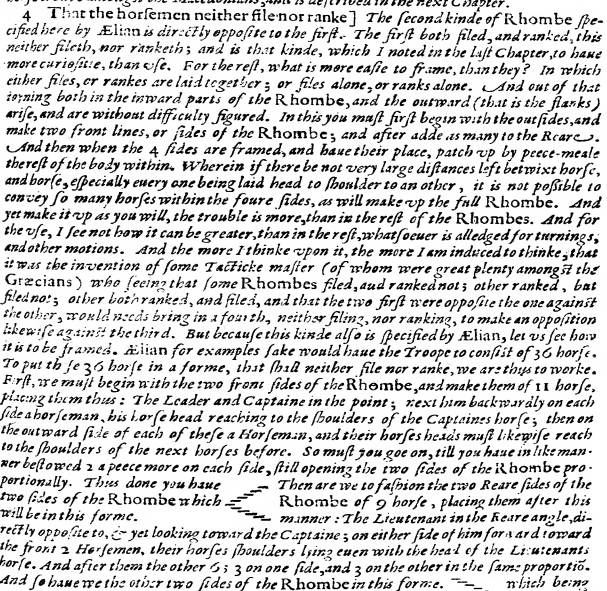 4 That the horsemen neither file nor ranke] The second kinde of Rhombe spe-
cified here by Ælian is directly opposite to the first. The first both filed, and ranked, this
neither fileth, nor ranketh; and is that kinde, which I noted in the last Chapter, to haue
more curiositie, than vse. For the rest, what is more easie to frame, than they? In which
either files, or rankes are laid together; or files alone, or ranks alone. And out of that
ioyning both in the inward parts of the Rhombe, and the outward (that is the flanks)
arise, and are without difficulty figured. In this you must first begin with the outsides, and
make two front lines, or sides of the Rhombe; and after adde as many to the Reare.
And then when the 4 sides are framed, and haue their place, patch vp by peece-meale
the rest of the body within. Wherein if there be not very large distances left betwixt horse,
and horse, especially euery one being laid head to shoulder to an other, it is not possible to
convey so many horses within the foure sides, as will make vp the full Rhombe. And
yet make it vp as you will, the trouble is more, than in the rest of the Rhombes. And for
the vse, I see not how it can be greater, than in the rest, whatsoeuer is alledged for turnings,
and other motions. And the more I thinke vpon it, the more I am induced to thinke, that
it was the invention of some Tacticke master (of whom were great plenty amongst the
Græcians) who seeing that some Rhombes filed, aud ranked not; other ranked, but
filed not; other both ranked, and filed, and that the two first were opposite the one against
the other, would needs bring in a fourth, neither filing, nor ranking, to make an opposition
likewise against the third. But because this kinde also is specified by Ælian, let vs see how
it is to be framed. Ælian for examples sake would haue the Troope to consist of 36 horse.
To put th se 36 horse in a forme, that shall neither file nor ranke, we are thus to worke.
First, we must begin with the two front sides of the Rhombe, and make them of 11 horse,
placing them thus: The Leader and Captaine in the point; next him backwardly on each
side a horseman, his horse head reaching to the shoulders of the Captaines horse; then on
the outward side of each of these a Horseman, and their horses heads must likewise reach
to the shoulders of the next horses before. So must you goe on, till you haue in like man-
ner bestowed 2 a peece more on each side, still opening the two sides of the Rhombe pro-
portionally. Thus done you haue Then are we to fashion the two Reare sides of the
two sides of the Rhombe which Rhombe of 9 horse, placing them after this
will be in this forme. manner: The Lieutenant in the Reare angle, di-
rectly opposite to, & yet looking toward the Captaine; on either side of him forward toward
the front 2 Horsemen, their horses shoulders lying euen with the head of the Lieutenants
horse. And after them the other 6; 3 on one side, and 3 on the other in the same proportiō.
And so haue we the other two sides of the Rhombe in this forme. which being